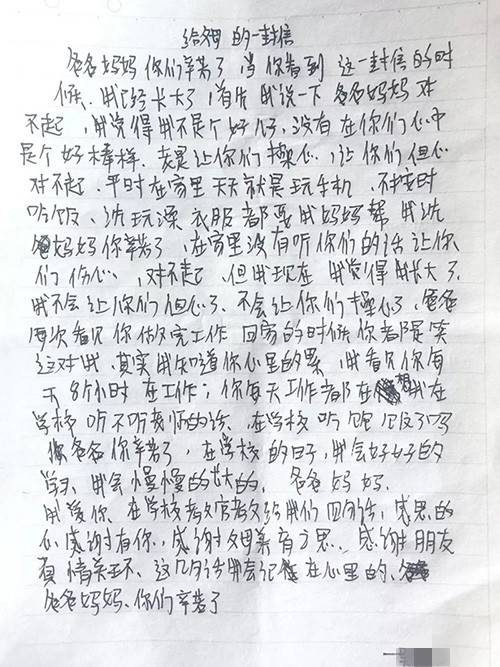 给父母的一封信
爸爸妈妈你们辛苦了当你看到这一封信的时
候、我已经长大了,首先我说一下爸爸妈妈对
不起,我觉得我不是个好儿子,没有在你们心中
是个好榜样、老是让你们操心,让你们但心
对不起、平时在家里天天就是玩手机、不按时
吃饭、洗玩澡衣服都要我妈妈帮我洗
妈妈你辛苦了,在家里没有听你们的话让你
们伤心,对不起、但我现在我觉得我长大了、
我不会让你们但心了、不会让你们操心了,爸爸
每次看见你做完工作回家的时候你都是笑
这对我、其实我知道你心里的累、我看见你每
天8个小时在工作;你每天工作都在想我在
学校听不听教师的话、在学校吃饱没了吗
爸爸你辛苦了,在学校的日子,我会好好的
学习、我会慢慢的长大的、爸爸妈妈、
我爱你、在学校教官教给我们四句话,感恩的
心,感谢有你,感谢父母养育之恩、感谢朋友
有情关怀、这几句话我会记在心里的、
爸爸妈妈、你们辛苦了